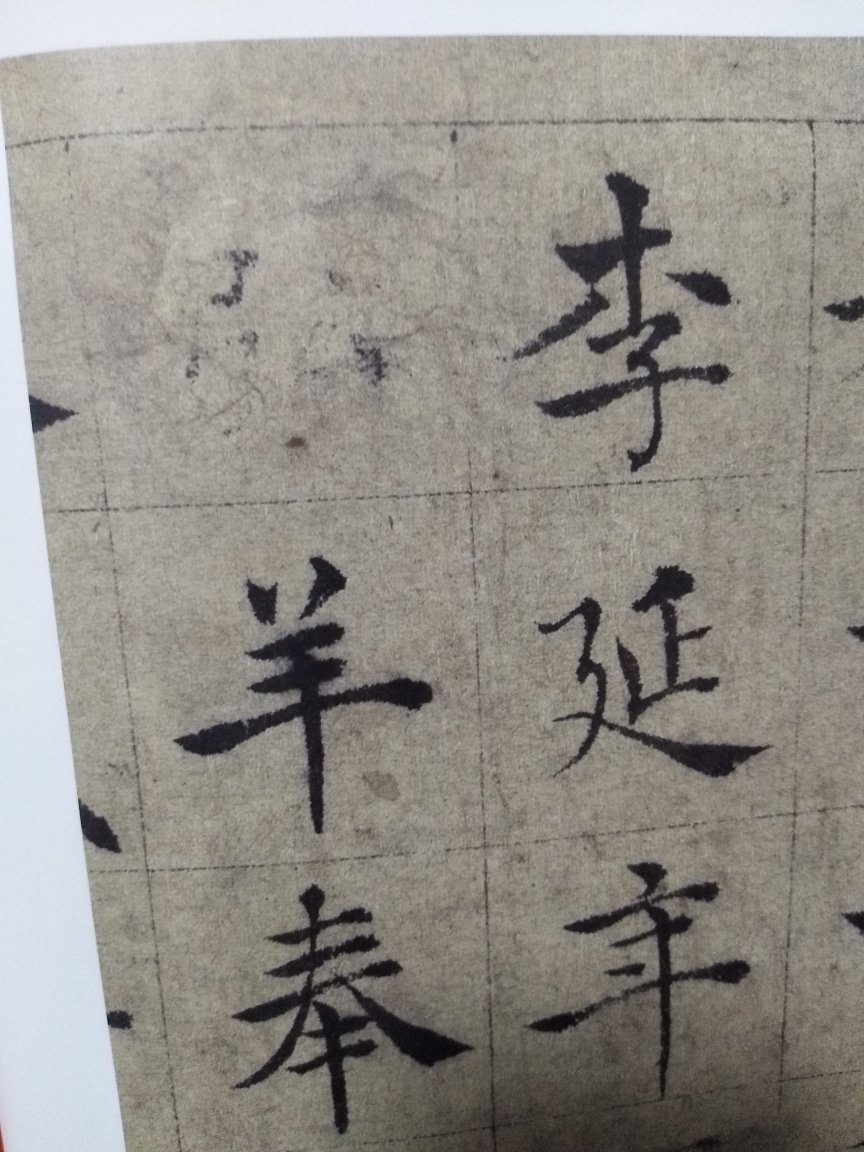 李延年
羊奉